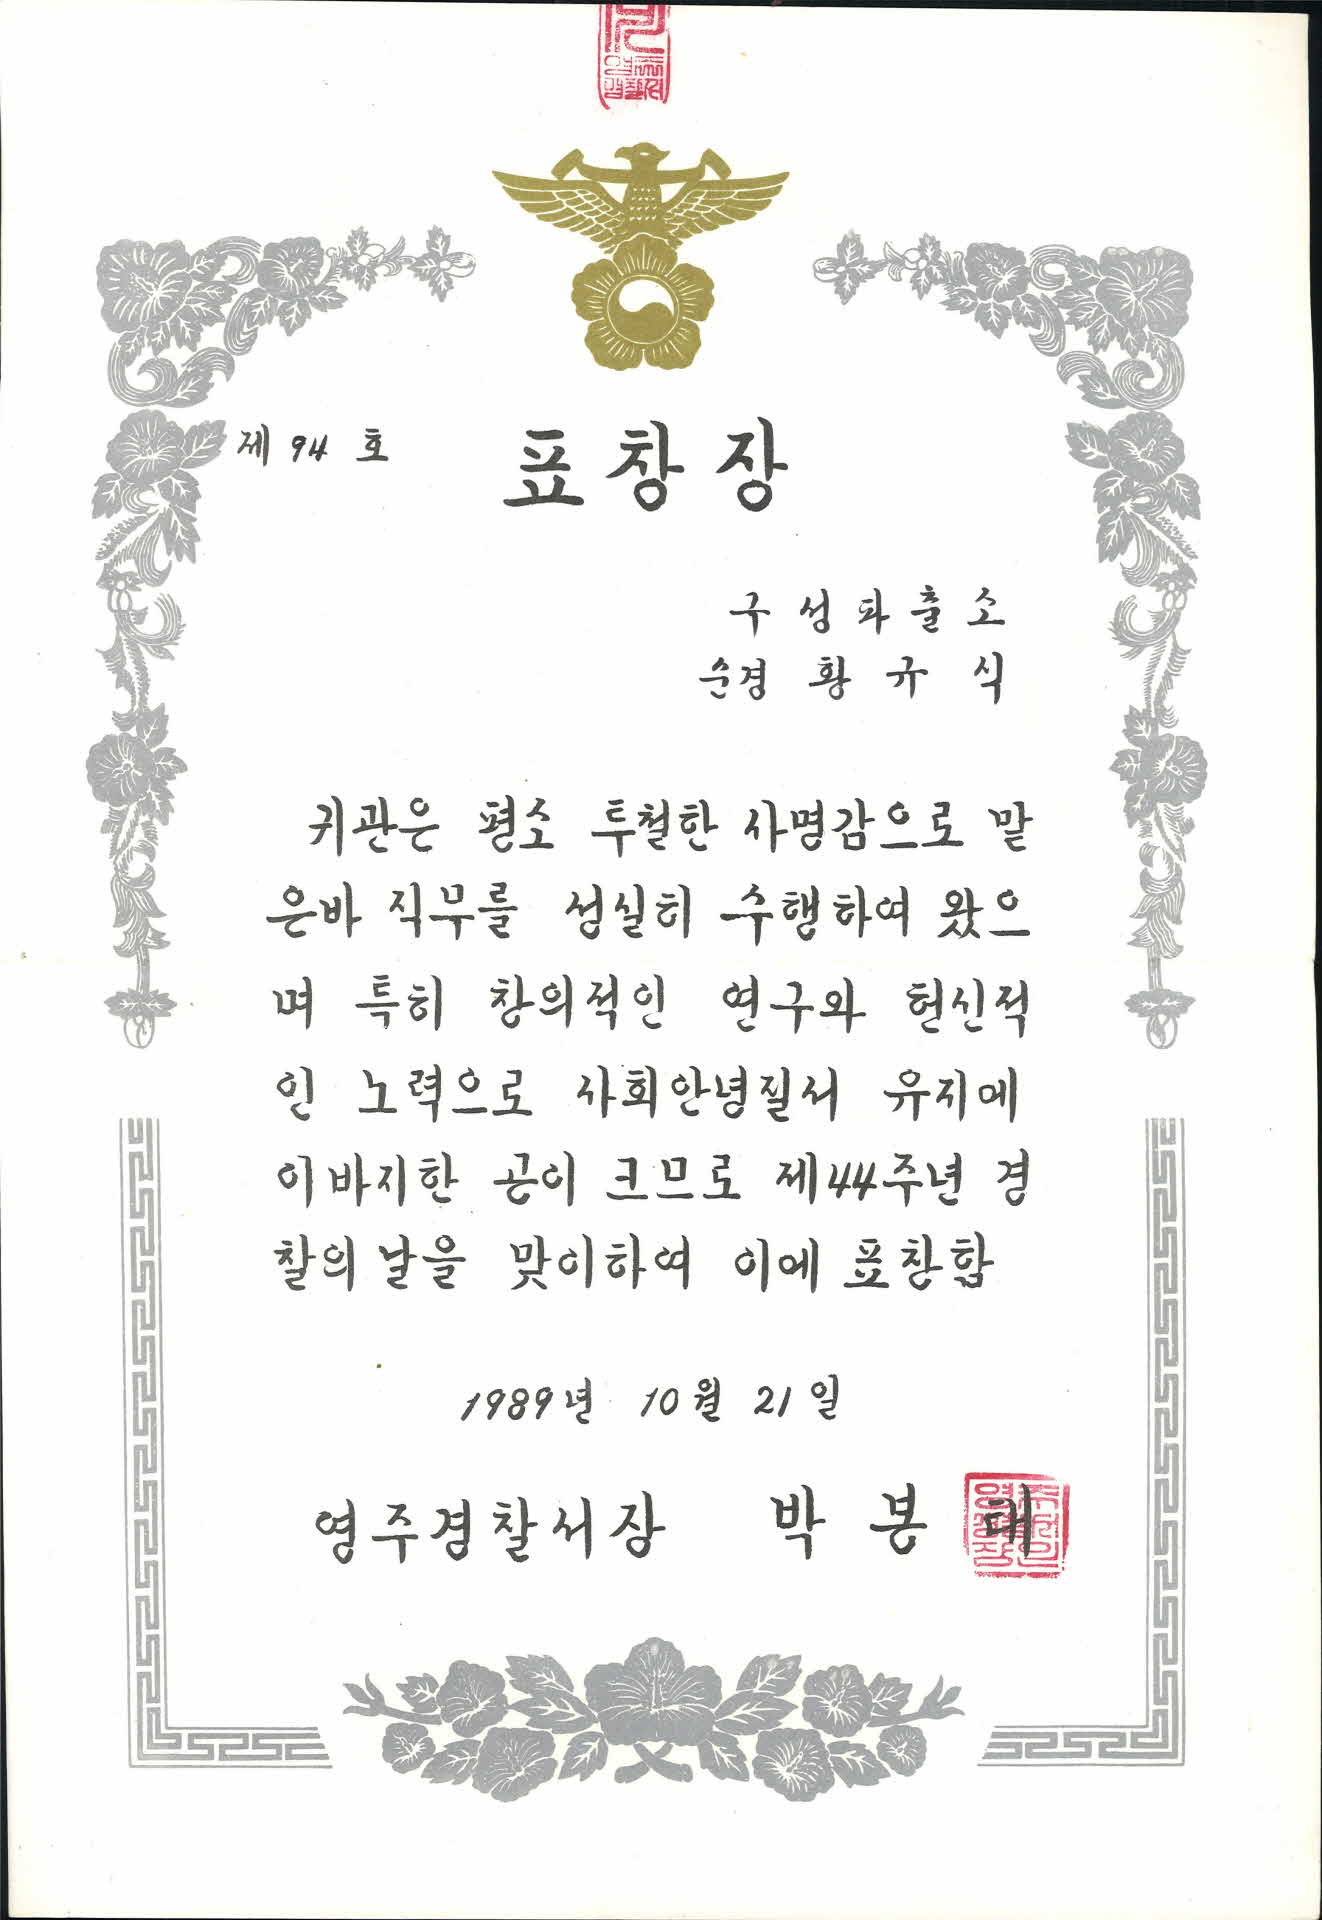 제 94 호
표창장
구성파출소
순경 황규식
귀관은 평소 투철한 사명감으로 맡
은바 직무를 성실히 수행하여 왔으
며 특히 창의적인 연구와 헌신적
인 노력으로 사회안녕질서 유지에
이바지한 공이 크므로 제44주년 경
찰의 날을 맞이하여 이에 표창함
1989년 10월 21일
영주경찰서장 박봉태